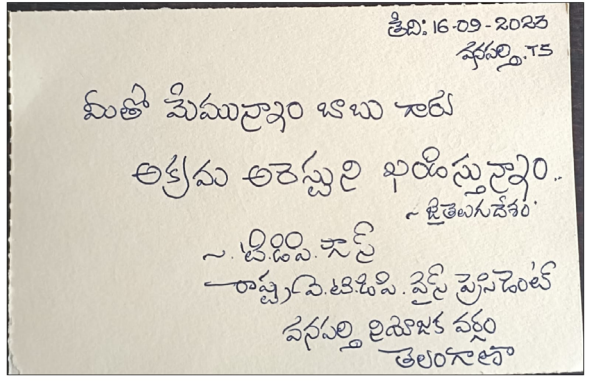 తేది: 16-09-2023
వనపర్తి. TS
మీతో మేమున్నాం బాబు గారు
అక్రమ అరెస్టుని ఖండిస్తున్నాం..
~ జై తెలుగుదేశం
~. టి.డి.పి.
రాష్ట్ర ఐ.టి.డి.పి. వైస్ ప్రెసిడెంట్
వనపర్తి నియోజక వర్గం
తెలంగాణా